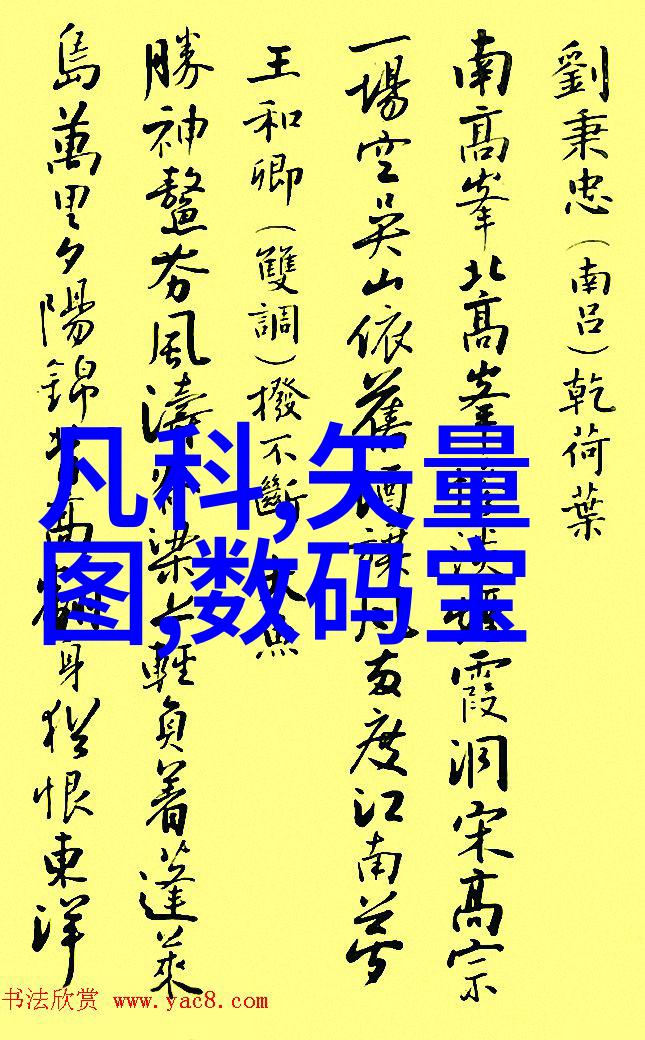 劉秉忠(南呂)乾荷葉
南高峯北高峯淡煙霞洞宋高宗
一場空吳山依舊酒風兩度江南夢
王和卿(雙調)撥不斷 大魚
勝神鰲夯風濤脊梁上輕負着蓬萊
島萬里夕陽錦背高翻身猶恨東洋
凡科,矢量
图,数码宝
书法欣赏 www.yac8.com